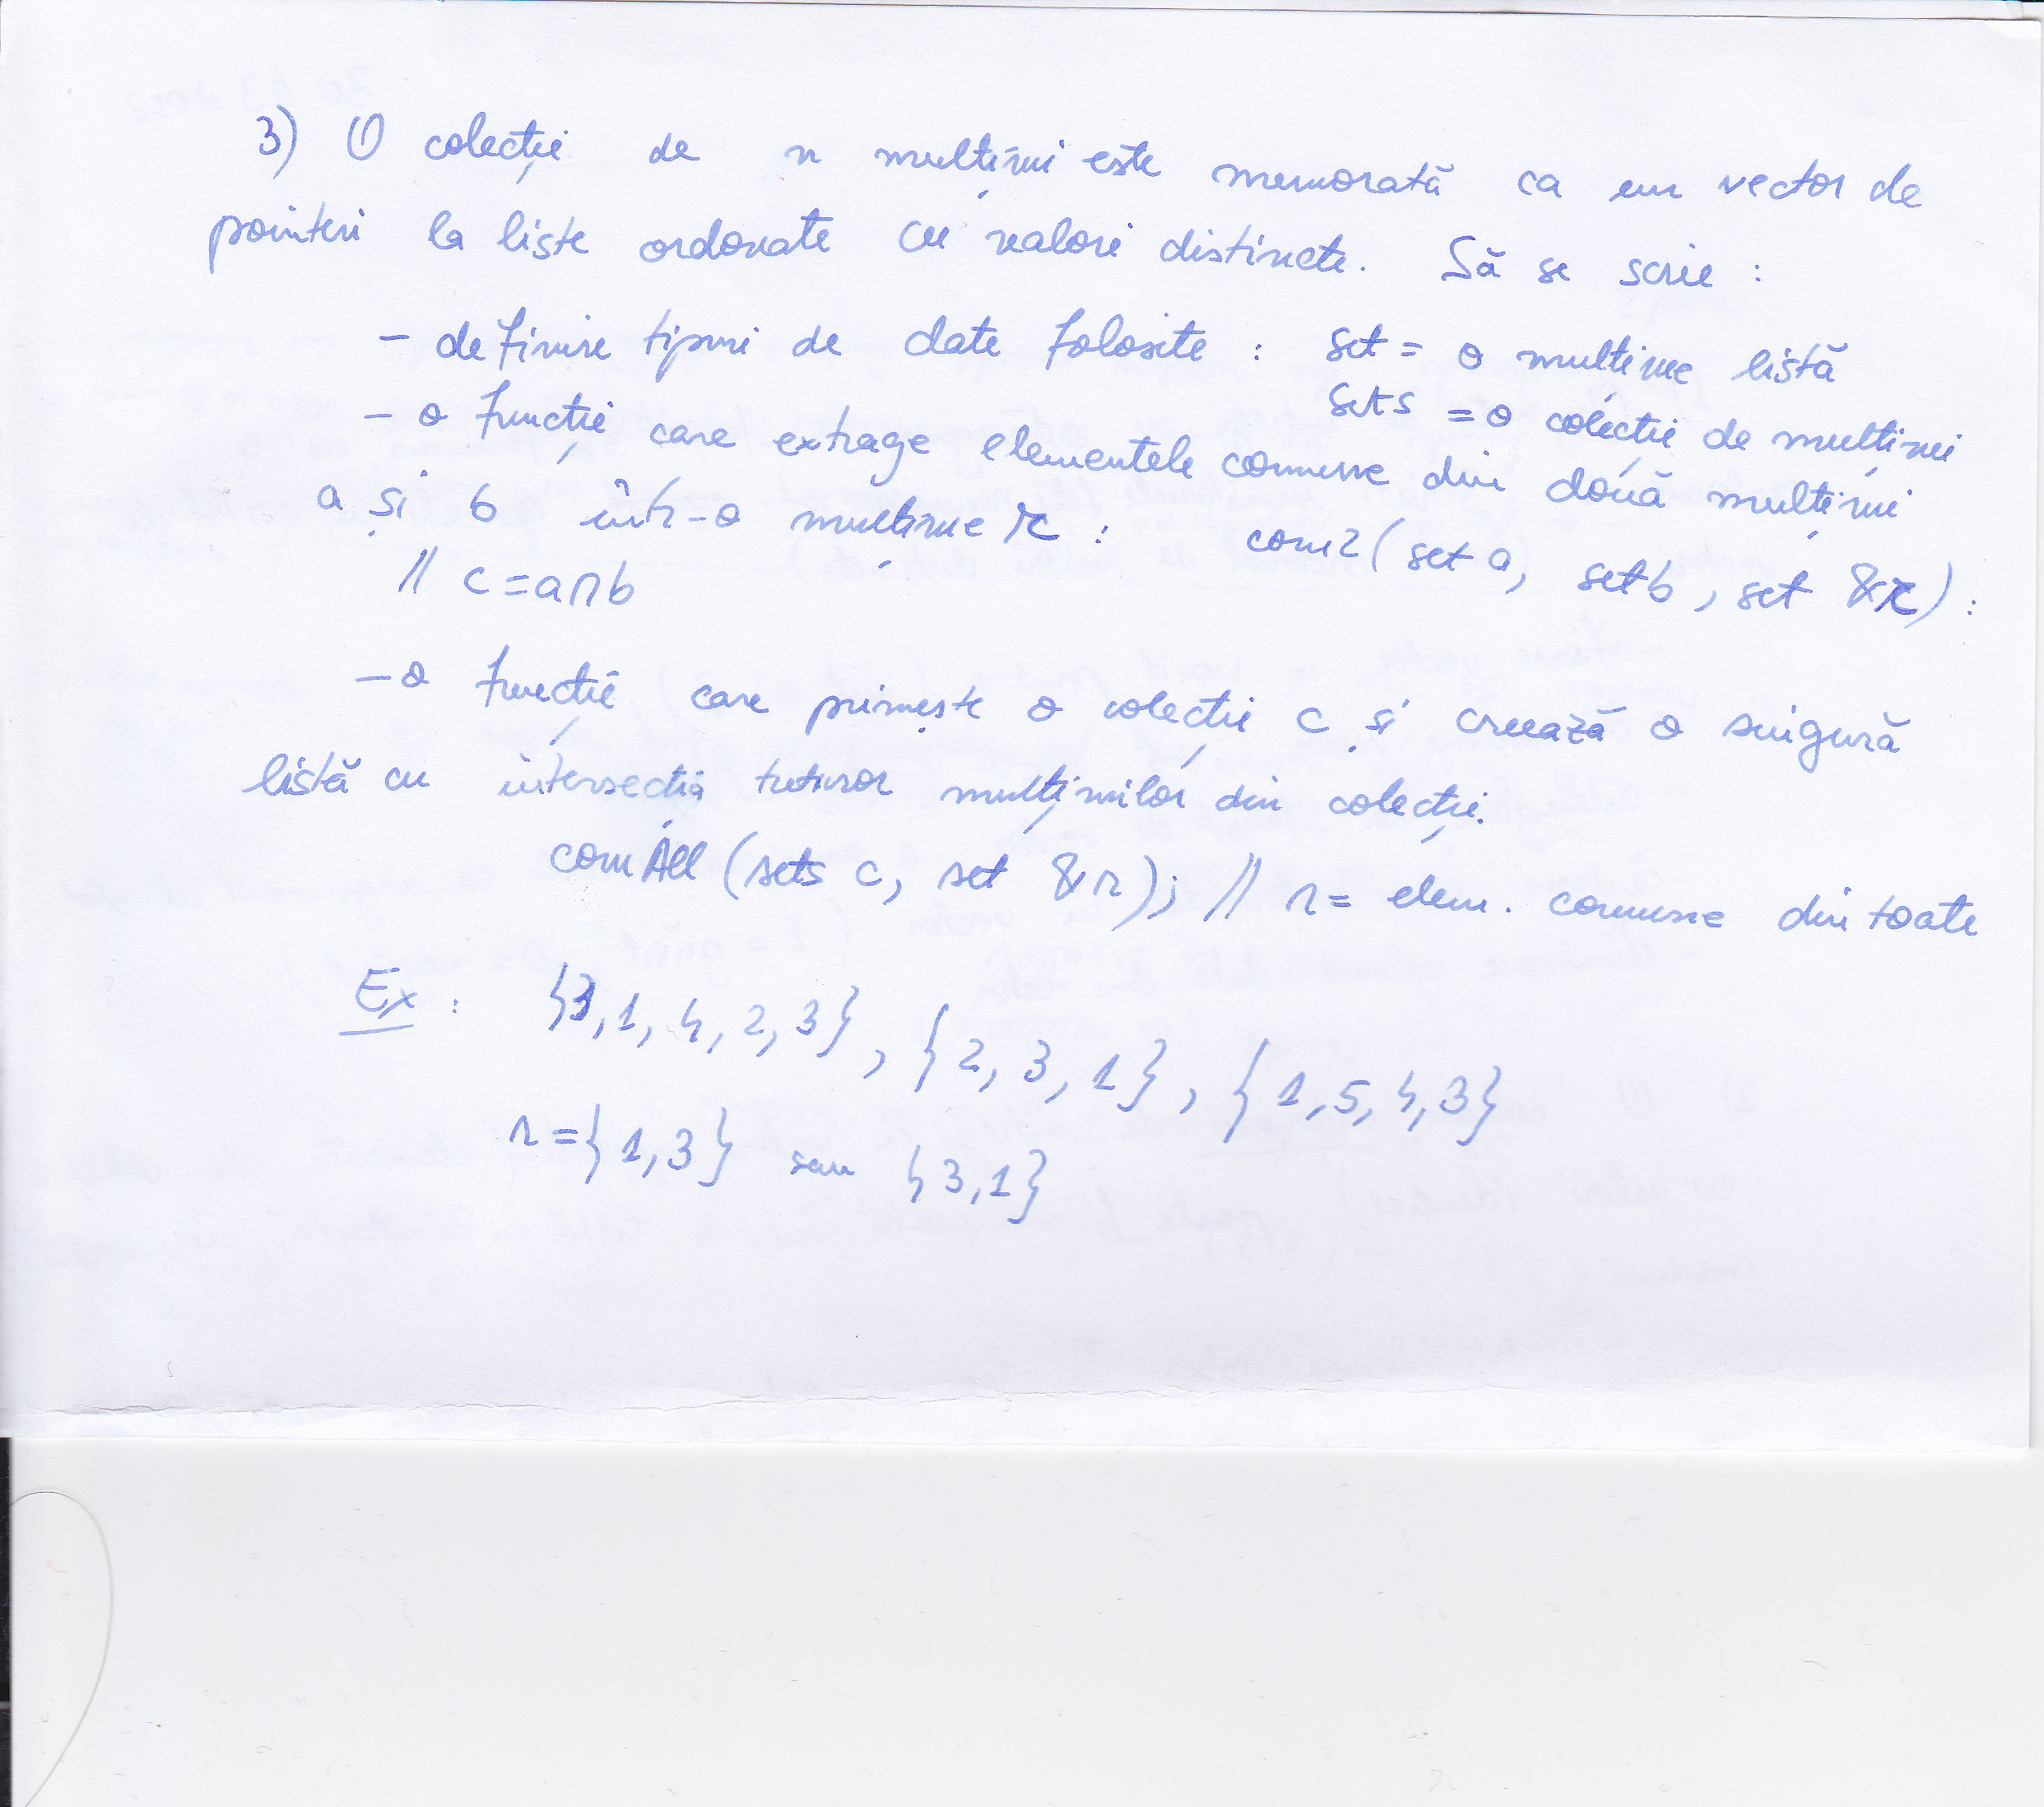 3) O colecție de n mulțimi este memorată ca un vector de
pointeri la liste ordonate cu valori distincte. Să se scrie :
- definire tipuri de date folosite : set = o mulțime listă
sets = o colecție de mulțimi
- o funcție care extrage elementele comune din două mulțimi
a și b într-o mulțime r : com2 (set a, set b, set &r) :
// c = a∩b
- o funcție care primește o colecție c și creează o singură
listă cu intersecția tuturor mulțimilor din colecție.
comAll (sets c, set &r); // r = elem. comune din toate
Ex : {1, 4, 2, 3} , {2, 3, 1} , {1, 5, 4, 3}
r = {1, 3} sau {3, 1}